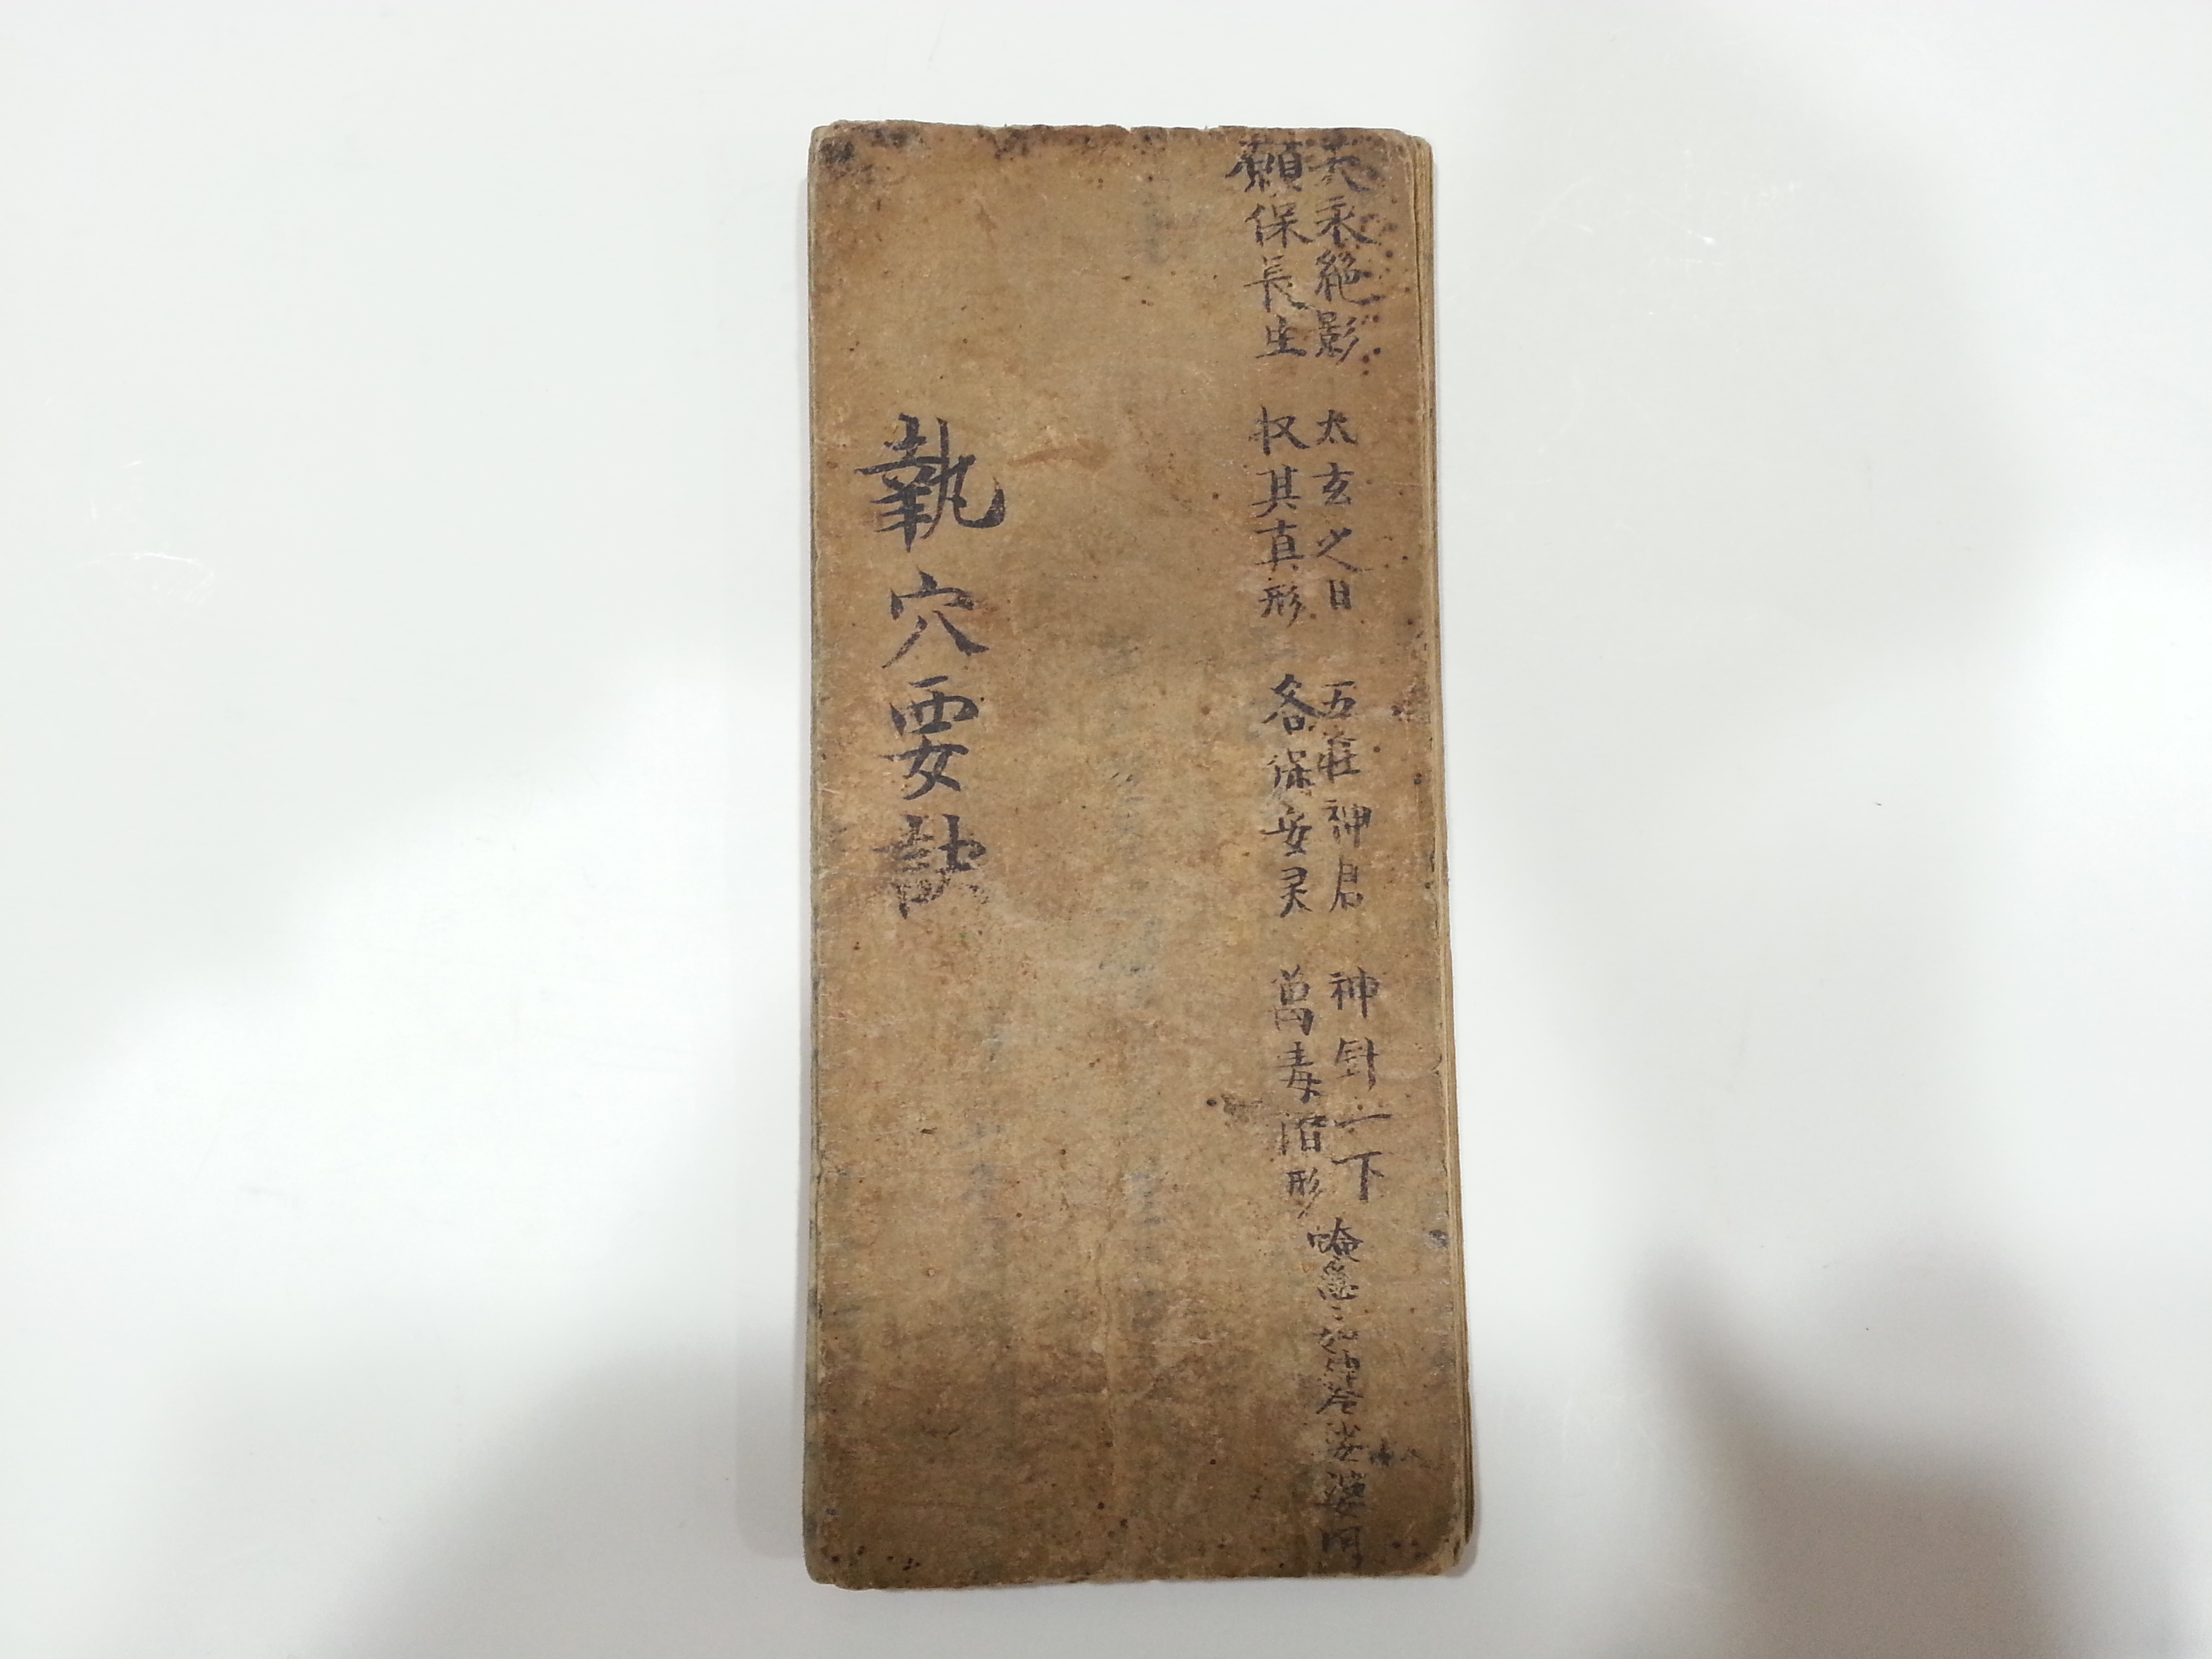 永絕影 太玄之日 五莊神君 神針一下
願保長生 权其真形 各保安灵 萬毒潛形
唵急々如律令娑婆呵
執穴要訣